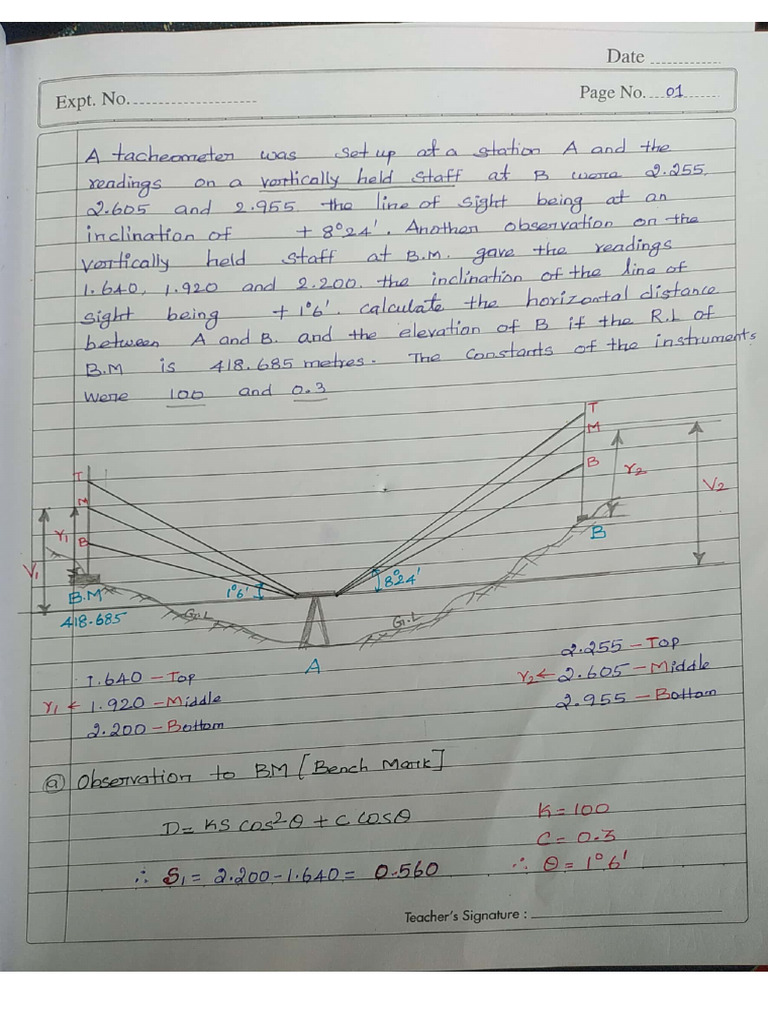 Date
Expt. No.
Page No. 01
A tacheometer was set up at a station A and the
readings on a vertically held staff at B were 2.255,
2.605 and 2.955 the line of sight being at an
inclination of + 8°24'. Another observation on the
vertically held staff at B.M. gave the readings
1.640, 1.920 and 2.200. the inclination of the line of
sight being + 1°6'. calculate the horizontal distance
between A and B. and the elevation of B if the R.L of
B.M is 418.685 metres. The constants of the instruments
were 100 and 0.3
T
M
B
r1
V1
B.M
418.685
1°6'
G.L
A
8°24'
G.L
T
M
B
r2
V2
B
1.640 - Top
r1 ← 1.920 - Middle
2.200 - Bottom
2.255 - Top
r2 ← 2.605 - Middle
2.955 - Bottom
ⓐ Observation to BM [Bench Mark]
D = KS cos²θ + C cosθ
K = 100
C = 0.3
∴ S1 = 2.200 - 1.640 = 0.560
∴ θ = 1°6'
Teacher's Signature :